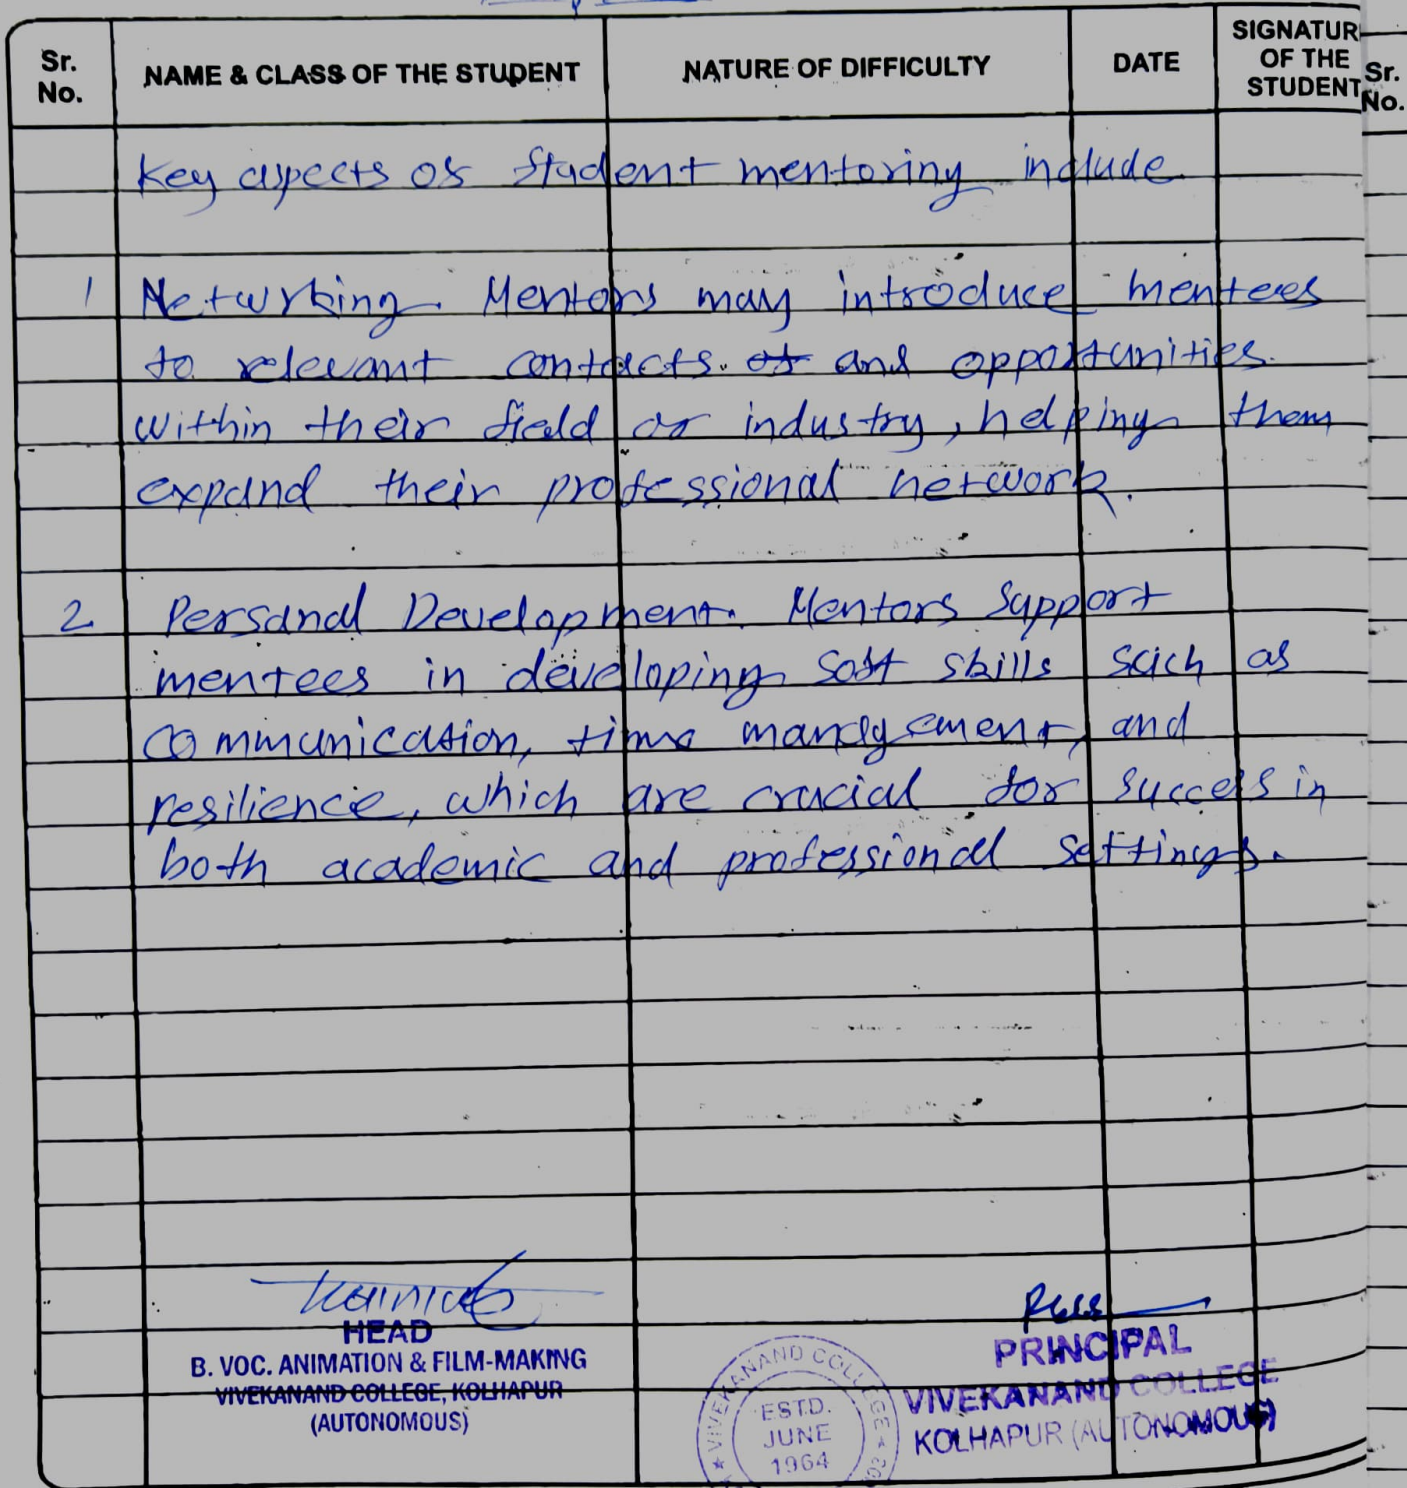 Sr. No. NAME & CLASS OF THE STUDENT NATURE OF DIFFICULTY DATE SIGNATUR OF THE STUDENT
Sr. No.
Key aspects of Student mentoring include
1 Netwrking. Mentors may introduce mentees
to relevant contacts. and opportunities.
within their field or industry, helping them
expand their professional network.
2 Personal Development. Mentors Support
mentees in developing soft skills such as
communication, time management, and
resilience, which are crucial for success in
both academic and professional settings.
HEAD
B. VOC. ANIMATION & FILM-MAKING
VIVEKANAND COLLEGE, KOLHAPUR
(AUTONOMOUS)
VIVEKANAND COLLEGE
ESTD.
JUNE
1964
PRINCIPAL
VIVEKANAND COLLEGE
KOLHAPUR (AUTONOMOUS)